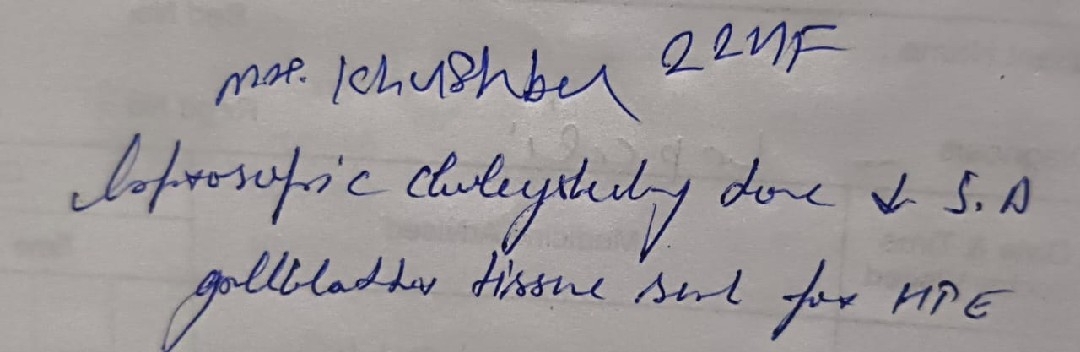 Mrs. Khushbu 22y/F
laproscopic cholecystectomy done ↓ S.A
gallbladder tissue sent for HPE